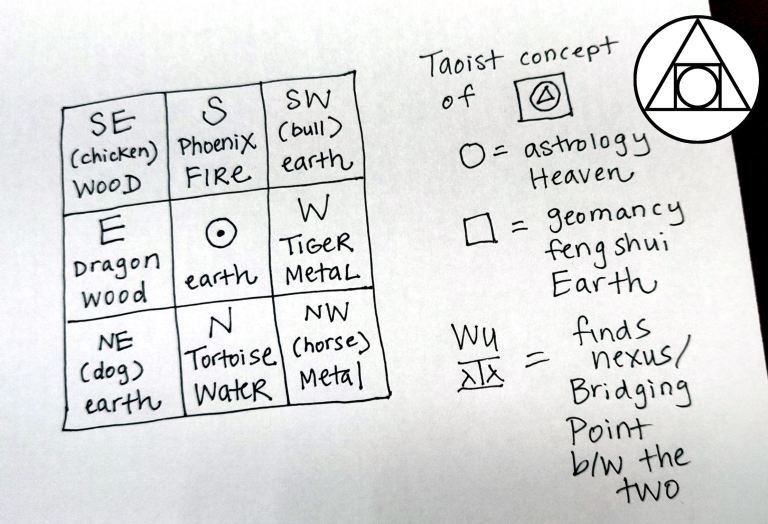 SE
(chicken)
WOOD
S
Phoenix
FIRE
SW
(bull)
earth
E
Dragon
wood
earth
W
TIGER
METAL
NE
(dog)
earth
N
Tortoise
WATER
NW
(horse)
Metal
Taoist concept
of
= astrology
Heaven
= geomancy
feng shui
Earth
Wu
= finds
nexus/
Bridging
Point
b/w the
two